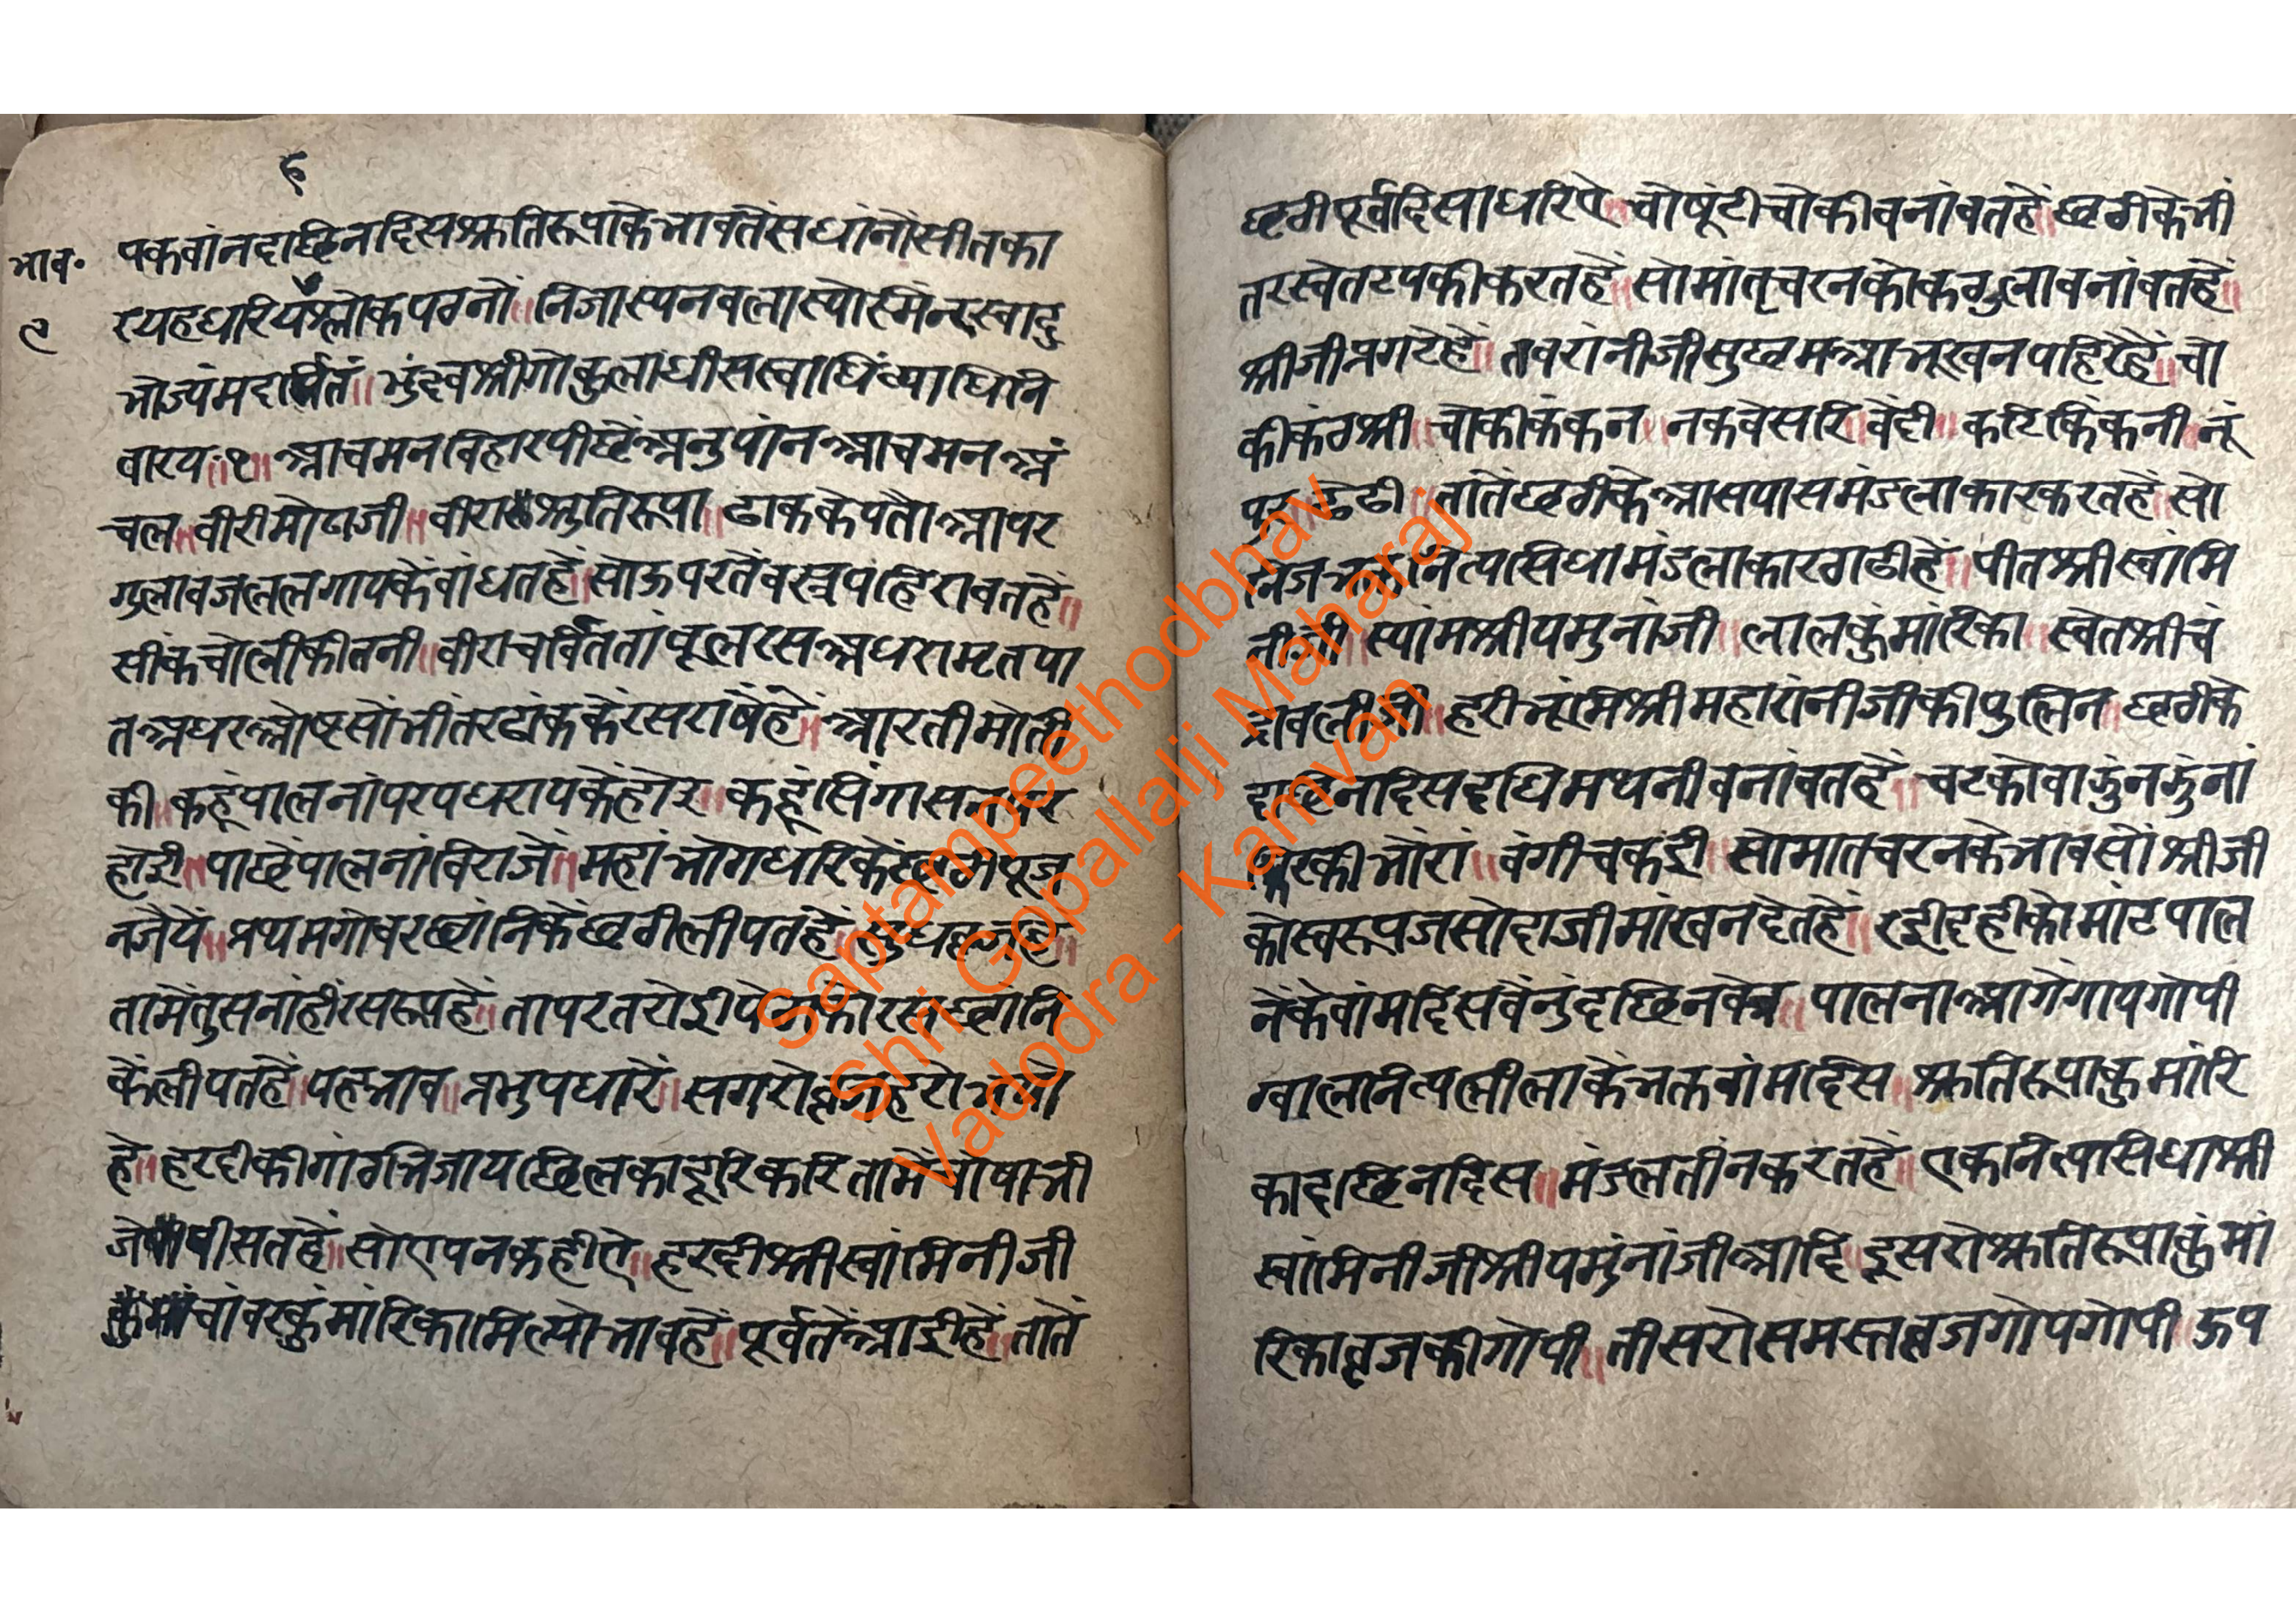 ६
भाव॰
९
पकवांनदाछिनदिसश्रुतिरूपाकेभावतेंसधांनोंसीतका
रयहधरियेंश्लोकपढनों॥निजास्यनवलास्योस्मिन्स्वादु
भोज्यंमदार्पितं॥भुंक्ष्वश्रीगोकुलाधीसस्वाधिंव्याधिनि
वारय॥१॥आचमनविहारपीछेंअनुपांनआचमनअं
चल॥वीरीमोटाजी॥वीराश्रुतिरूपा॥ढाककेपतौआपर
गुलावजललगायकेंवांधतहें॥सोऊपरतेंवस्त्रपहिरावतहें॥
सींकचोलीकीतनी॥वीराचर्वितताम्बूलरसअधरामृतपा
तअधरओष्टसोंभींतरढांककेंरसराषेंहें॥आरतीमोती
की॥कहूंपालनांपरपधरायकेंहोइ॥कहूंसिंगासन
होइ॥पाछेंपालनांविराजें॥महांभोगधरिकेंछठीपूज
नजैयें॥प्रथमगोवरछांनिकेंछठीलीपतहें॥
तामेंतुसनांहींरसरूपहें॥तापरतरोई
केंलीपतहें॥यहभाव॥प्रभुपधारें॥सगरो
हें॥हरदीकीगांठभिजायछिलकादूरिकरितामेंचोषाभी
जेपीसतहें॥सोएपनकहीऐ॥हरदीश्रीस्वांमिनीजी
चांवरकुंमांरिकामिल्योभावहें॥पूर्वतेंआईहें॥तातें
छठीपूर्वदिसाधरिऐ॥चोषूंटीचोकीवनांवतहें॥छठीकेभीं
तरस्वेतटपकीकरतहें॥सोमांतृचरनकोकठुलावनांवतहें॥
श्रीजीप्रगटेहें॥तवरांनीजीसुछमआभूखनपहिरेंहें॥चो
कीकंठश्री॥चोकीकंकन॥नकवेसरि॥वेंदी॥कटिकिंकनी॥नूं
तातेंछठीकेआसपासमंडलाकारकरतहें॥सो
निजभक्तनित्यसिधामंडलाकारठाढीहें॥पीतश्रीस्वांमि
नीजी॥स्यांमश्रीयमुनांजी॥लालकुंमांरिका॥स्वेतश्रीचं
द्रावलीजी॥हरीभूंमिश्रीमहारांनीजीकीपुलिन॥छठीके
दाछिनदिसदधिमथनीवनांवतहें॥चटकोवाझुंनझुंनां
भोंरां॥वंगीचकई॥सोमातचरनकेभावसोंश्रीजी
कोस्वरूपजसोदाजीमांखनदेतहें॥रईदहीकोमांटपाल
नेंकेवांमदिसवेंनुंदछिनवक्र॥पालनाआगेंगायगोपी
ग्वालनित्यलीलाकेभक्तवांमदिस॥श्रुतिरूपाकुमांरि
कादछिनदिस॥मंडलतींनकरतहें॥एकनित्यसिधाश्री
स्वांमिनीजीश्रीयमुंनांजीआदि॥दूसरोश्रुतिरूपाकुंमां
रिकाव्रजकीगोपी॥तीसरोसमस्तव्रजगोपगोपी॥ऊप
Saptampeethodbhav
Shri Gopallalji Maharaj
Vadodra - Kamvan